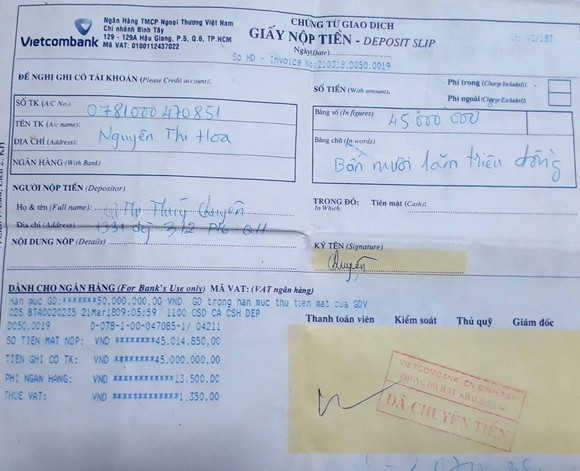 Vietcombank
Ngân Hàng TMCP Ngoại Thương Việt Nam
Chi nhánh Bình Tây
129 - 129A Hậu Giang, P.5, Q.6, TP.HCM
Mã VAT: 0100112437022
CHỨNG TỪ GIAO DỊCH
GIẤY NỘP TIỀN - DEPOSIT SLIP
Ngày (Date)
So HD - Invoice No:210318.D050.0019
ĐỀ NGHỊ GHI CÓ TÀI KHOẢN (Please Credit account):
SỐ TK (A/C No.) 0781000470851
TÊN TK (A/c name): Nguyễn Thi Hoa
ĐỊA CHỈ (Address):
NGÂN HÀNG (With Bank)
SỐ TIỀN (With amount):
Phí trong (Charge Included):
Phí ngoài (Charge Excluded):
Bằng số (In figures) 45 000 000
Bằng chữ (In words)
Bốn mươi lăm triệu đồng
NGƯỜI NỘP TIỀN (Depositor)
Họ & tên (Full name): Thị Thuý Chuyên
Địa chỉ (Address)
NỘI DUNG NỘP (Details)
TRONG ĐÓ:
In Which
Tiền mặt (Cash):
KÝ TÊN (Signature)
Chuyên
DÀNH CHO NGÂN HÀNG (For Bank's Use only) MÃ VAT: (VAT ngân hàng)
Han muc GD:*******50,000,000.00 VND GD trong han muc thu tien mat cua GDV
025 BTA0020235 21Mar1809:05:59 1100 CSD CA CSH DEP
D050.0019 0-078-1-00-047085-1/ 04211
SO TIEN MAT NOP: VND **********45,014,850.00
TIEN GHI CO TK: VND **********45,000,000.00
PHI NGAN HANG: VND *************13,500.00
THUE VAT: VND **************1,350.00
Thanh toán viên Kiểm soát Thủ quỹ Giám đốc
VIETCOMBANK CN BINH TAY
ĐÃ CHUYỂN TIỀN